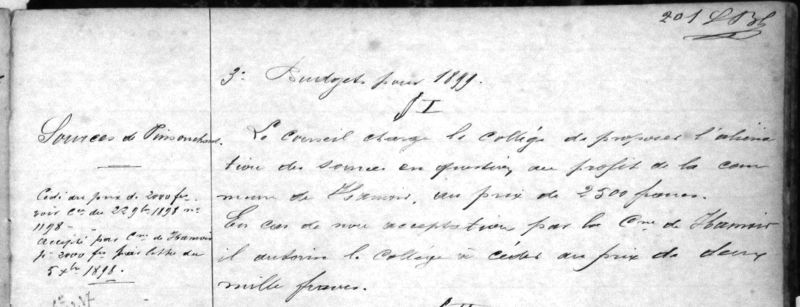 201
3° Budgets pour 1899.
§ I
Sources de Pinsonchamp.
Le Conseil charge le collège de proposer l'aliéna
tion des sources en question, au profit de la com
mune de Hamoir, au prix de 2500 francs.
En cas de non acceptation par la Cne de Hamoir
il autorise le collège à céder au prix de deux
mille francs.
Cédé au prix de 2000 frs.
voir Con du 22 9bre 1898 n°
1198
accepté par Cne de Hamoir
p. 2000 frs par lettre du
5 xbre 1898.